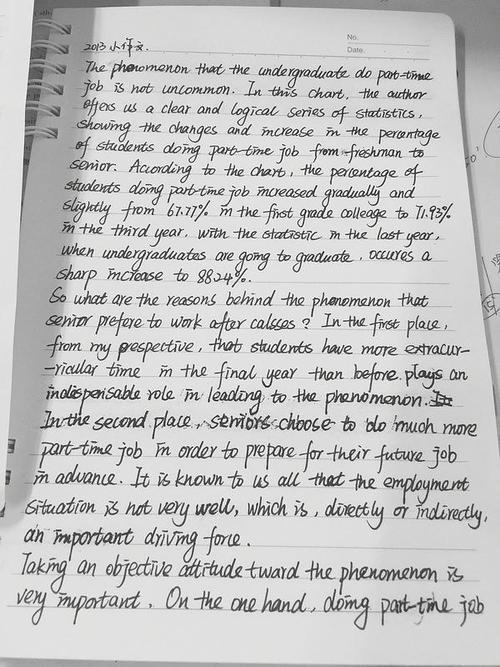 No.
Date.
2013 小作文.
The phenomenon that the undergraduate do part-time
job is not uncommon. In this chart, the author
offers us a clear and logical series of statistics,
showing the changes and increase in the percentage
of students doing part-time job from freshman to
senior. According to the chart, the percentage of
students doing part-time job increased gradually and
slightly from 67.77% in the first grade colleage to 71.93%
in the third year, with the statistic in the last year,
when undergraduates are going to graduate, occures a
sharp increase to 88.24%.
So what are the reasons behind the phenomenon that
senior prefere to work after calsses? In the first place,
from my prespective, that students have more extracur-
ricular time in the final year than before plays an
indispensable role in leading to the phenomenon.
In the second place, seniors choose to do much more
part-time job in order to prepare for their future job
in advance. It is known to us all that the employment
situation is not very well, which is, directly or indirectly,
an important driving force.
Taking an objective attitude tward the phenomenon is
very important. On the one hand, doing part-time job